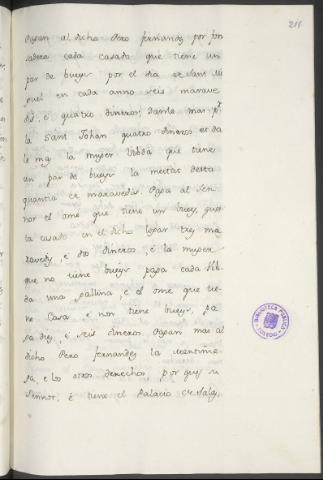 211
Pagan al dicho Pero fernandez por fon
sadera cada casado que tiene un
par de bueys por el dia de sant Mi
guel en cada anno seis marave
dis, e quatro dineros; danle mas por
la Sant Johan quatro dineros et da
le mas la muger Vibda que tiene
un par de bueys la meitat desta
quantia de maravedis. Papa al Sen
nor el ome que tiene un buey, que es
ta casado en el dicho logar tres ma
ravedis, e dos dineros, e la muger
que no tiene bueys papa cada Vib
da una gallina, e el ome que tie
ne Casa e non tiene bueys, pa
pa diez, e seis dineros. Papan mas al
dicho Pero fernandez la martinie
ga, e los otros derechos por que es su
Sennor; e tiene el Palacio
BIBLIOTECA PUBLICA
TOLEDO